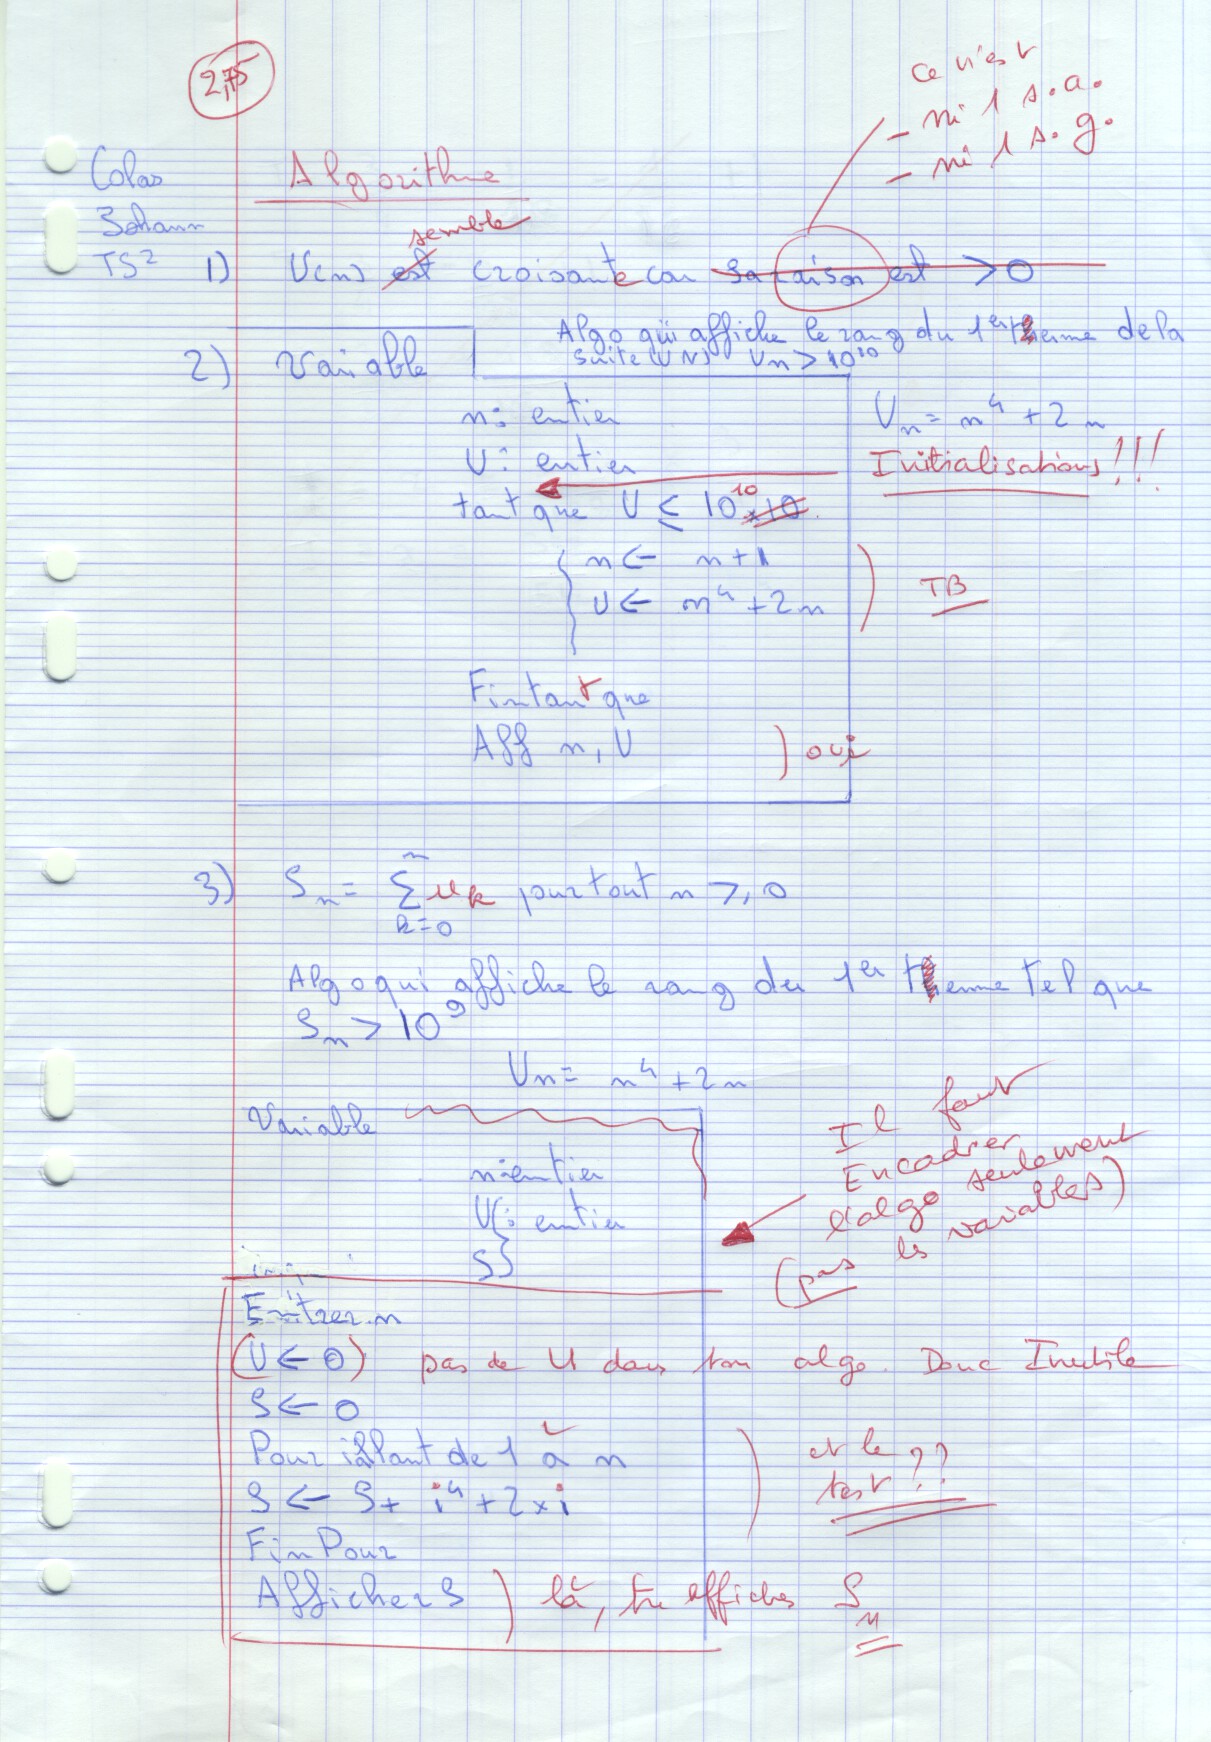 2,75
ce n'est
- ni 1 s.a.
- ni 1 s.g.
Colas
Algorithme
Johann
semble
TS2
1) U(n) est croisante car sa raison est > 0
Algo qui affiche le rang du 1er therme de la
suite (UN) Un > 10^10
2) Variable
n: entier
Un = n^4 + 2n
U: entier
Initialisations!!!
tant que U ≤ 10^10 × 10
n ← n+1
U ← n^4 + 2n
TB
Fintant que
Aff n, U
) oui
3) Sn = Σ (k=0, n) uk pour tout n ≥ 0
Algo qui affiche le rang du 1er therme tel que
Sn > 10^9
Un = n^4 + 2n
Variable
Il faut
Encadrer
l'algo seulement
(pas les variables)
n: entier
U: entier
S}
Entrer n
(U ← 0) pas de U dans ton algo. Donc Inutile
S ← 0
Pour i allant de 1 à n
S ← S + i^4 + 2×i
et le
test ??
Fin Pour
Afficher S ) là, tu affiches Sn